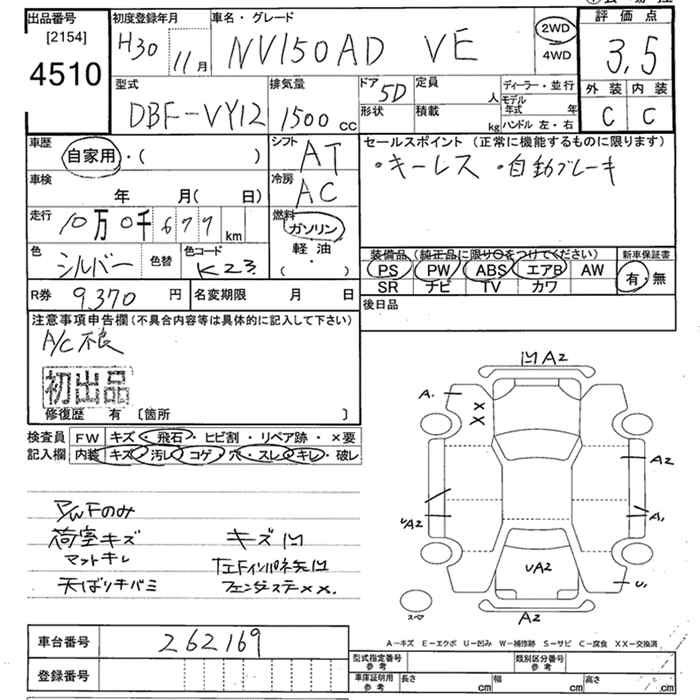 出品番号
[2154]
4510
初度登録年月
H30 11月
車名・グレード
NV150AD VE
2WD
4WD
評価点
3.5
外装 内装
C C
型式
DBF-VY12
排気量
1500 cc
ドア 5D
形状
定員 人
積載 kg
ディーラー・並行
モデル年式 年
ハンドル 左・右
車歴
自家用・( )
シフト
AT
車検
年 月( 日)
冷房
AC
走行
10万0千677 km
燃料
ガソリン
軽・油
( ・ )
色
シルバー
色替
色コード
K23
R券 9,370 円
名変期限 月 日
セールスポイント (正常に機能するものに限ります)
・キーレス ・自動ブレーキ
装備品 (純正品に限り○をつけてください)
PS PW ABS エアB AW
SR ナビ TV カワ
新車保証書
有・無
後日品
注意事項申告欄 (不具合内容等は具体的に記入して下さい)
A/C不良
初出品
修復歴 有 [箇所 ]
検査員
記入欄
FW キズ・飛石・ヒビ割・リペア跡・×要
内装 キズ・汚レ・コゲ・穴・スレ・キレ・破レ
P/WFのみ
荷室キズ キズ凹
マットキレ 左Fインパネ欠凹
天ばりキバミ フェンダーステ××.
凹 A2
A.
XX
A2
UA2
A.
UA2
U.
スペア
A2
A-キズ E-エクボ U-凹み W-補修跡 S-サビ C-腐食 XX-交換済
車台番号 262169
登録番号
型式指定番号
参考
類別区分番号
参考
車庫証明用
参考
長さ cm 幅 cm 高さ cm